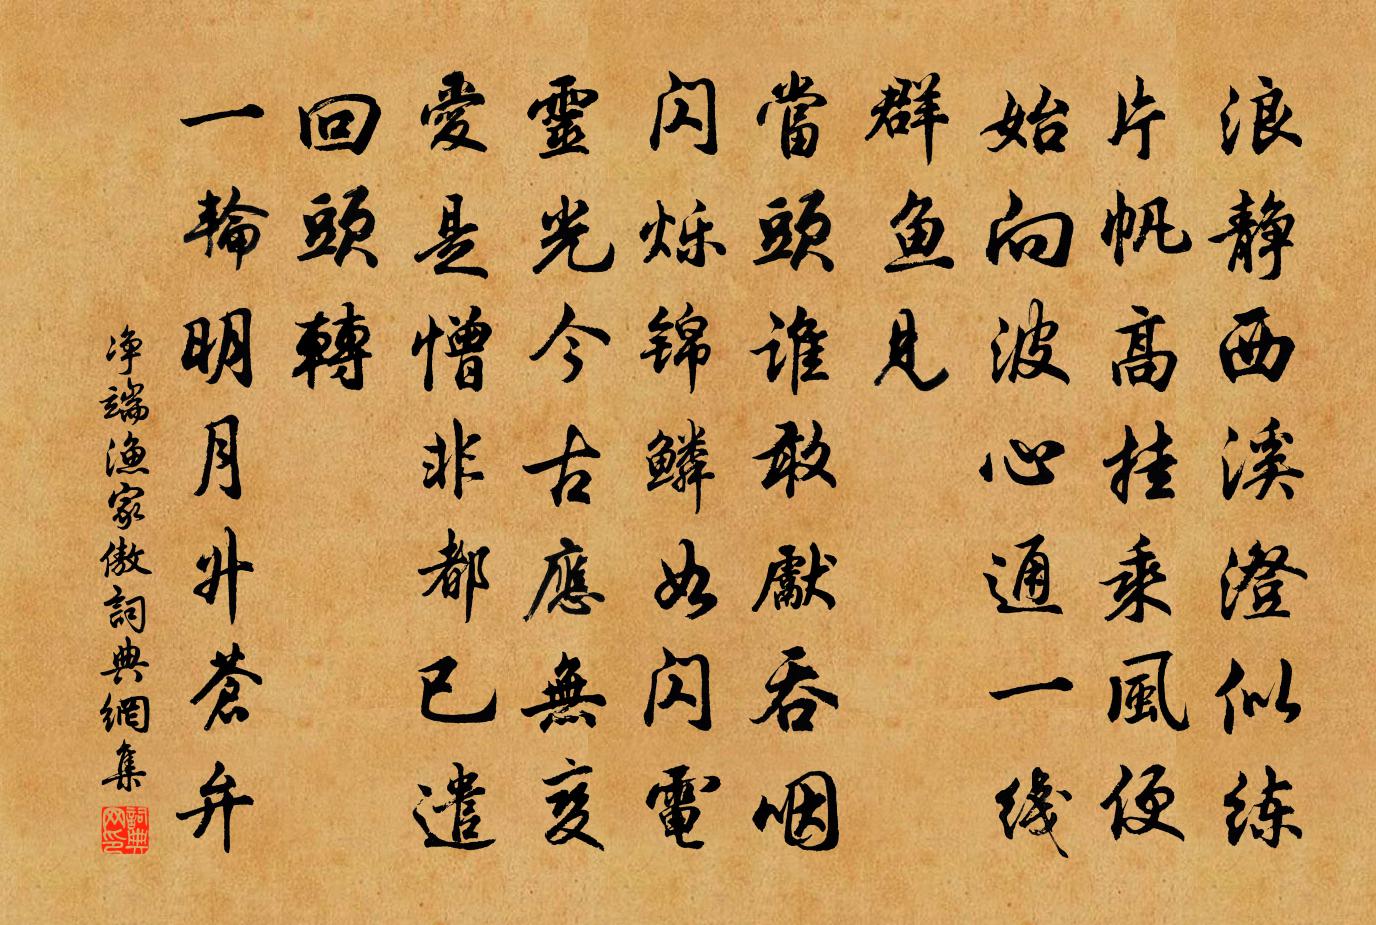 浪靜西溪澄似练
片帆高挂乘風便
始向波心通一线
群鱼見
當頭谁敢獻吞咽
闪烁锦鳞如闪電
靈光今古應無变
愛是憎非都已遣
回頭轉
一輪明月升蒼弁
净端渔家傲詞典網集
詞典网印